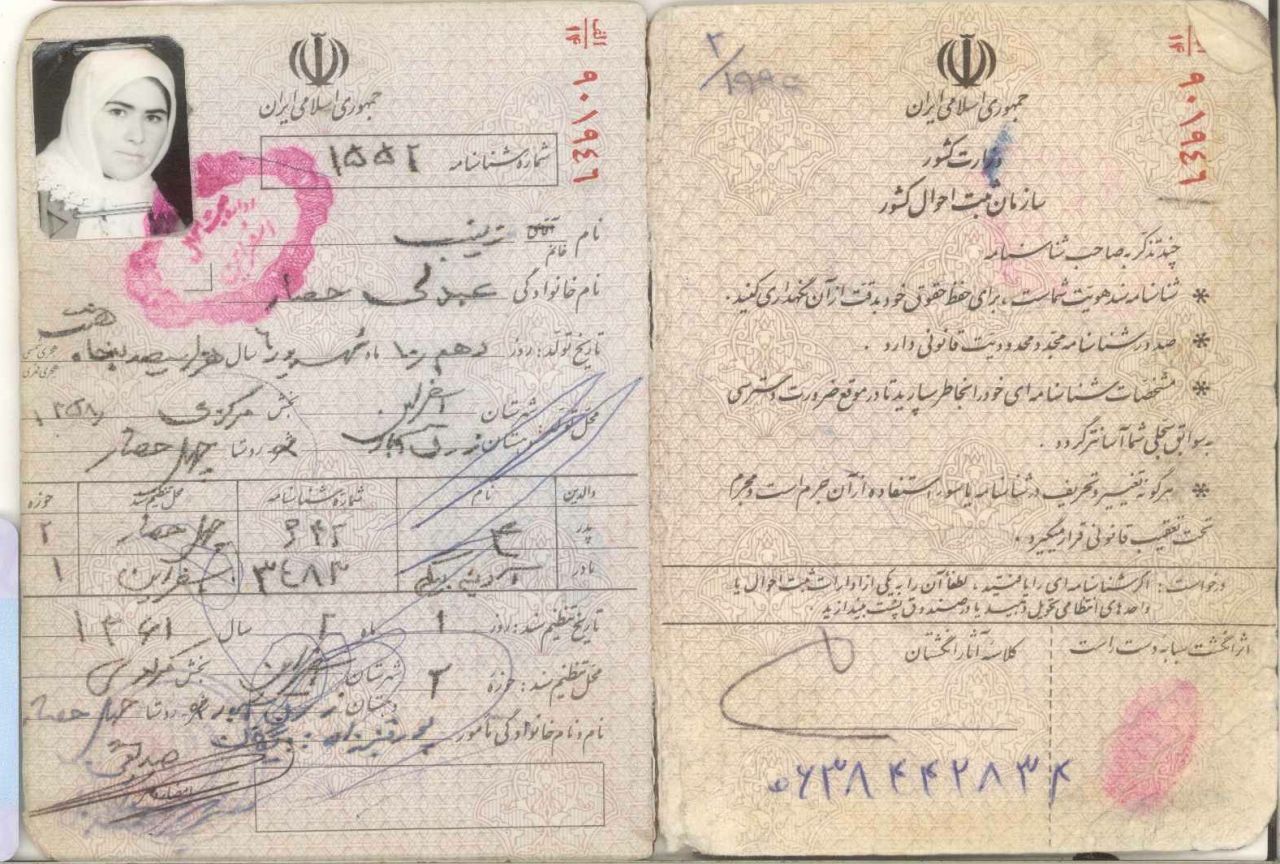 الف
۱۴
۹۰۱۹۴۶
جمهوری اسلامی ایران
وزارت کشور
سازمان ثبت احوال کشور
چند تذکر به صاحب شناسنامه
* شناسنامه سند هویت شماست ، برای حفظ حقوقی خود بدقت از آن نگهداری کنید .
* صدور شناسنامه مجدد محدودیت قانونی دارد .
* مشخصات شناسنامه ای خود را بخاطر بسپارید تا در موقع ضرورت دسترسی
به سوابق سجلی شما آسانتر گردد .
* هرگونه تغییر و تحریف در شناسنامه یا سوء استفاده از آن جرم است و مجرم
تحت تعقیب قانونی قرار میگیرد .
درخواست : اگر شناسنامه ای را یافتید ، لطفاً آن را به یکی از ادارات ثبت احوال یا
واحدهای انتظامی تحویل دهید یا در صندوق پست بیندازید .
اثر انگشت سبابه دست راست
کلاسه آثار انگشتان
الف
۱۴
۹۰۱۹۴۶
جمهوری اسلامی ایران
شماره شناسنامه ۱۵۵۲
نام آقای خانم زینب
نام خانوادگی عبدلی حصار
تاریخ تولد : روز دهم ۱۰ ماه شهریور ۶ سال هزار سیصد پنجاه هشت
هجری شمسی
هجری قمری
محل تولد : شهرستان اسفراین بخش مرکزی ۱۳۵۸
دهستان شهر روستا چهل حصار
والدین نام شماره شناسنامه محل تنظیم سند حوزه
پدر ۶۴۲ چهل حصار ۲
مادر ۳۴۸۳ اسفراین ۱
تاریخ تنظیم سند : روز ۱ ماه ۲ سال ۱۳۶۱
محل تنظیم سند : حوزه ۲ شهرستان بخش مرکزی
دهستان شهر روستا چهل حصار
نام و نام خانوادگی مأمور
امضاء